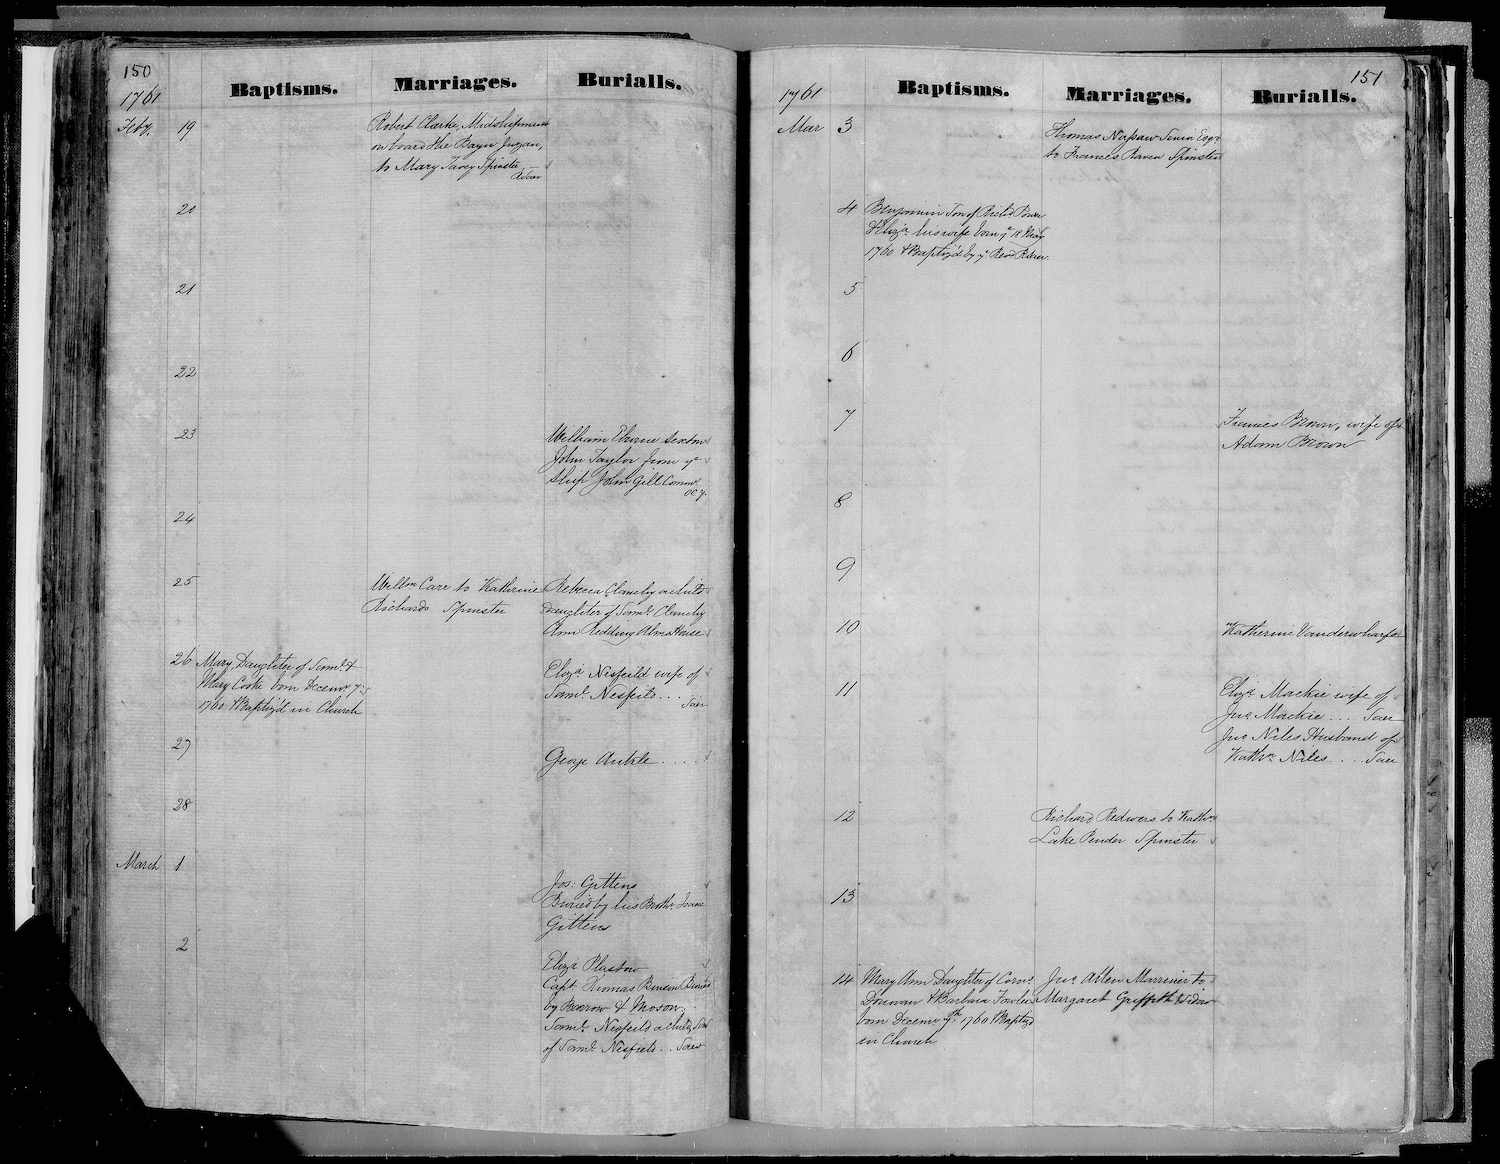 150
1761
Baptisms. Marriages. Burialls.
Feby. 19
Robert Clarke, Midshipman
on board the
to Mary Spinster
20
21
22
23
William Sexton
John Taylor from ye
Ship John Gilt Commr.
24
25
Willm Care to Katherine
Richards Spinster
Rebecca a child
daughter of Saml.
Ann Redding Alms House
26
Mary, Daughter of Saml. &
Mary Cooke born Decemr. 7
1760 & Baptiz'd in Church
Eliza. Nisfeild wife of
Saml. Nisfeild...
27
George
28
March 1
Jos: Gittens
Buried by his Brothr. Isaac
Gittens
2
Eliza Plastow
Capt. Thomas Buried
by &
Saml. Nisfeild a child, Son
of Saml. Nisfeild..
151
1761
Baptisms. Marriages. Burialls.
Mar 3
Thomas Esqr.
to Frances Raven Spinster
4
Benjamin Son of
& Eliza. his wife born ye 18
1760 & Baptiz'd by ye Revd.
5
6
7
Frances Brown, wife of
Adam Brown
8
9
10
Katherine Vanderwharfe
11
Eliza. Mackie wife of
Jno. Mackie ...
Jno. Niles Husband of
Kathn. Niles ...
12
Richard Redwers to Kathn.
Lake Pender Spinster
13
14
Mary Ann Daughter of Corns.
Donovan & Barbara Fowler
born Decemr. 9th. 1760 & Baptizd
in Church
Jno. Allen Marriner to
Margaret Griffith Widow